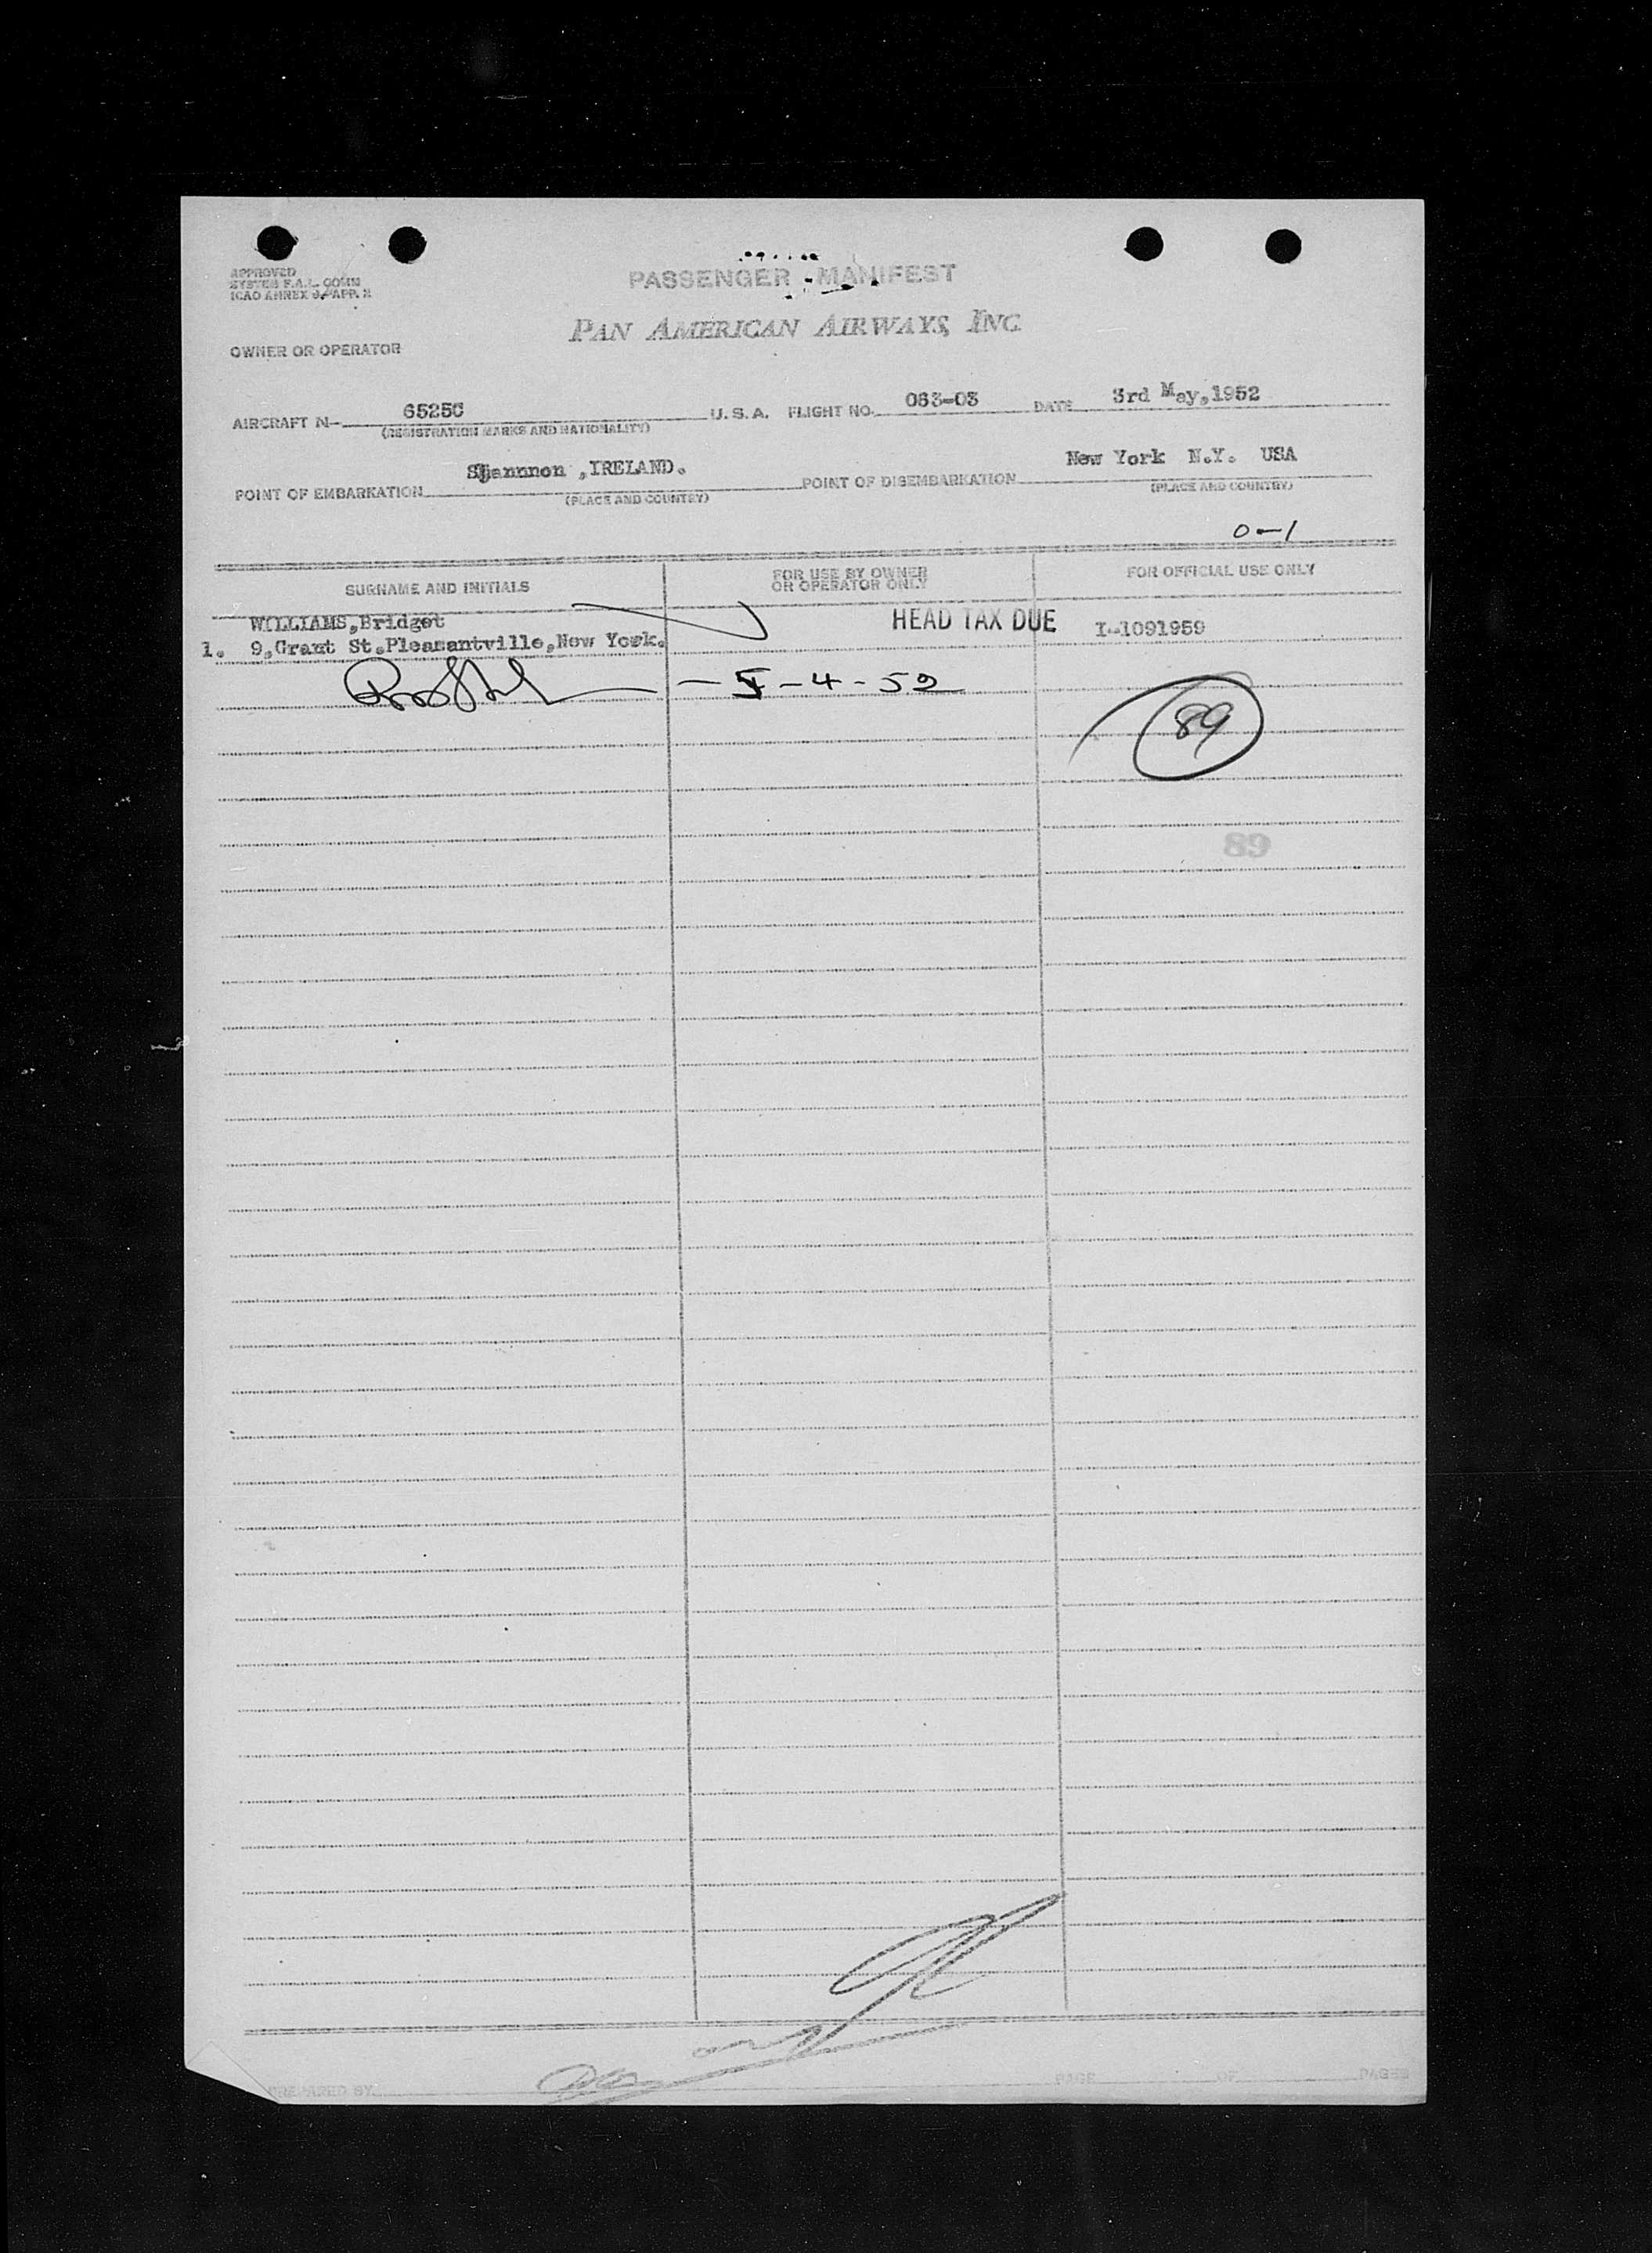 APPROVED
SYSTEM F.A.L. COMM
ICAO ANNEX 9, APP. 2
PASSENGER MANIFEST
PAN AMERICAN AIRWAYS, INC.
OWNER OR OPERATOR
AIRCRAFT N- 6525C U.S.A. FLIGHT NO. 063-03 DATE 3rd May,1952
(REGISTRATION MARKS AND NATIONALITY)
POINT OF EMBARKATION Shannnon ,IRELAND. POINT OF DISEMBARKATION New York N.Y. USA
(PLACE AND COUNTRY) (PLACE AND COUNTRY)
0-1
SURNAME AND INITIALS FOR USE BY OWNER OR OPERATOR ONLY FOR OFFICIAL USE ONLY
WILLIAMS,Bridget HEAD TAX DUE I-1091959
1. 9,Grant St.Pleasantville,New York.
5-4-52
89
89
PREPARED BY PAGE OF PAGES